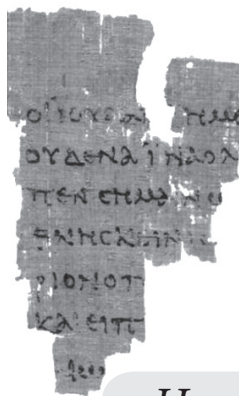 ΟΙΙΟΥΔΑΙ ΗΜΕ
ΟΥΔΕΝΑΪΝΑΟΛ
ΠΕΝϹΗΜΑΙΝω
ΘΝΗϹΚΕΙΝ
ΡΙΟΝΟΠ
ΚΑΙΕΙΠ